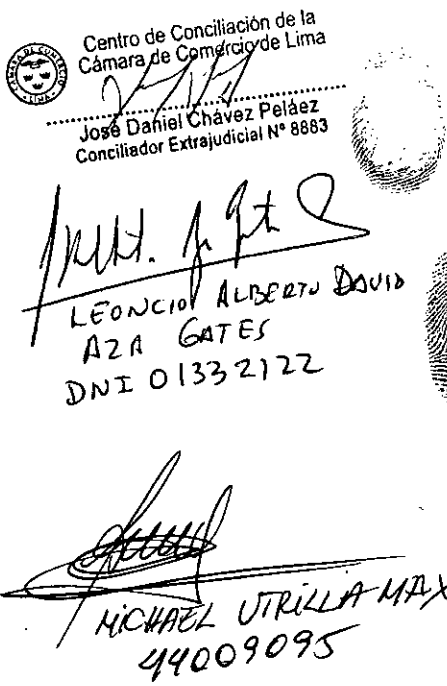 Centro de Conciliación de la
Cámara de Comercio de Lima
José Daniel Chávez Peláez
Conciliador Extrajudicial N° 8883
LEONCIO ALBERTO DAVID
AZA GATES
DNI 01332122
MICHAEL UTRILLA MAX
44009095